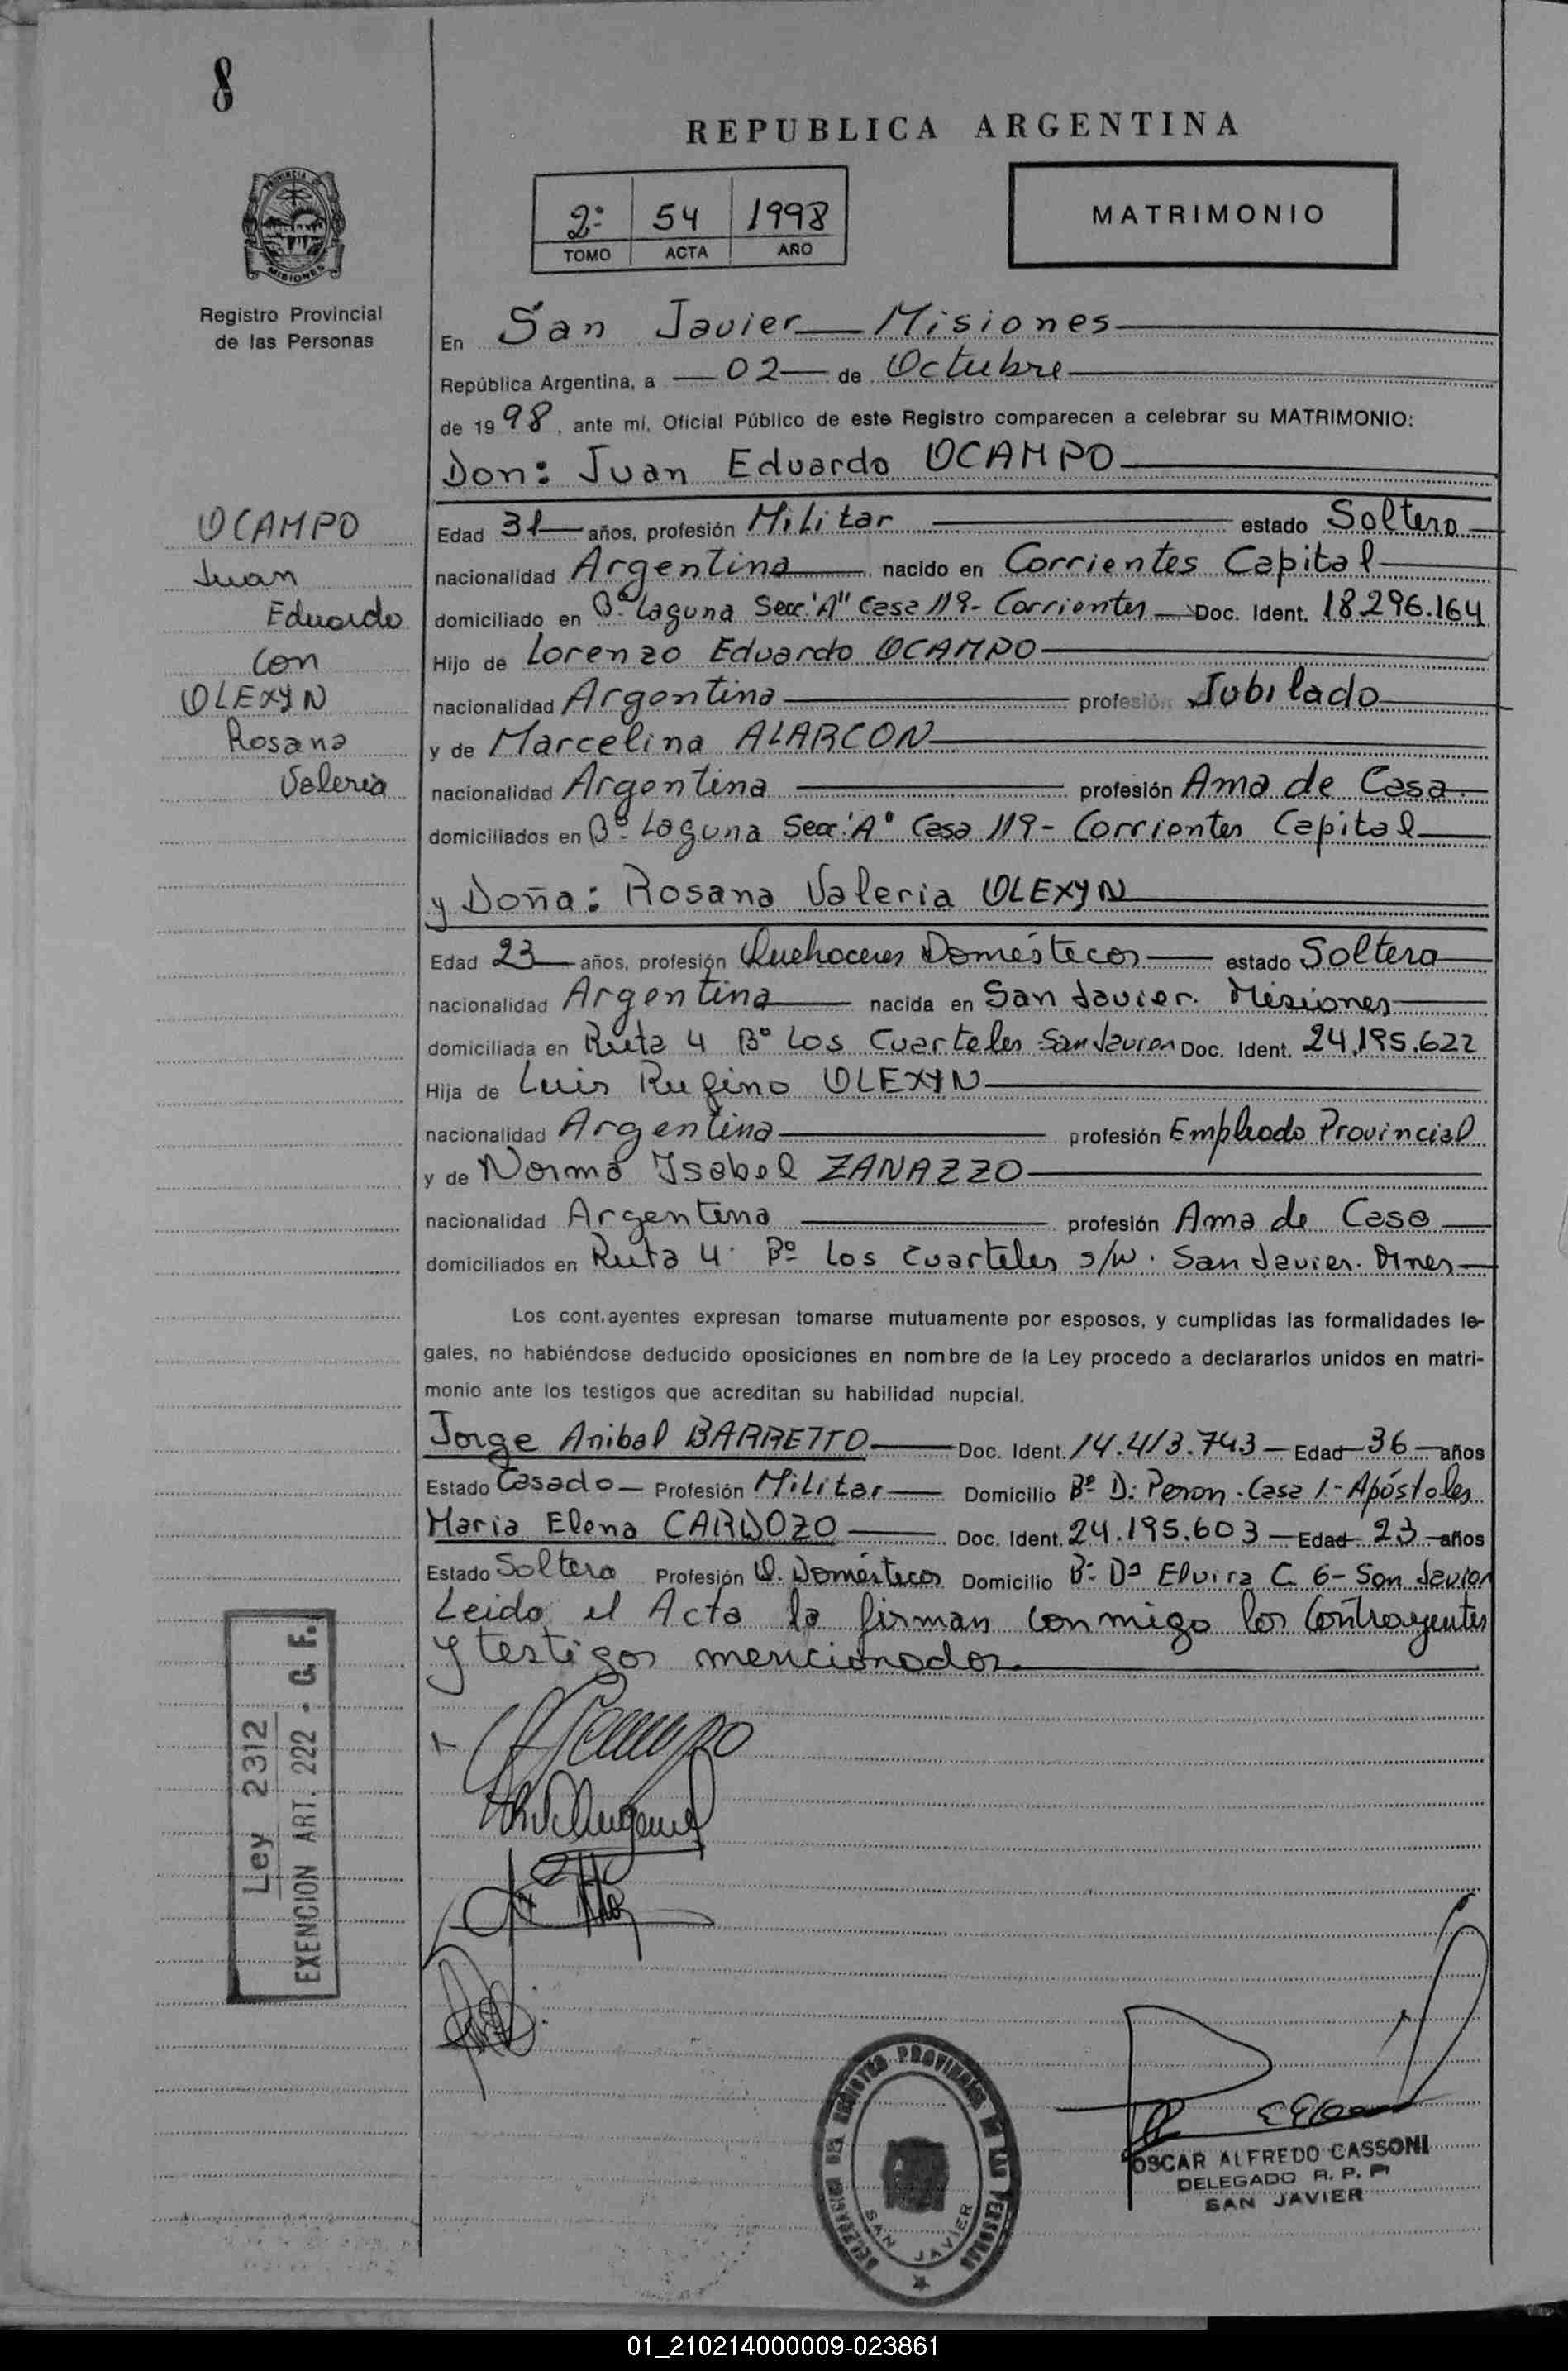 8
REPUBLICA ARGENTINA
2º 54 1998
TOMO ACTA AÑO
MATRIMONIO
PROVINCIA DE
MISIONES
Registro Provincial
de las Personas
En San Javier Misiones
República Argentina, a 02 de Octubre
de 1998, ante mí, Oficial Público de este Registro comparecen a celebrar su MATRIMONIO:
Don: Juan Eduardo OCAMPO
OCAMPO
Juan
Eduardo
con
OLEXYN
Rosana
Valeria
Edad 31 años, profesión Militar estado Soltero
nacionalidad Argentina nacido en Corrientes Capital
domiciliado en Bº Laguna Secc. "A" Casa 119- Corrientes Doc. Ident. 18.296.164
Hijo de Lorenzo Eduardo OCAMPO
nacionalidad Argentina profesión Jubilado
y de Marcelina ALARCON
nacionalidad Argentina profesión Ama de Casa
domiciliados en Bº Laguna Secc. "A" Casa 119- Corrientes Capital
y Doña: Rosana Valeria OLEXYN
Edad 23 años, profesión Quehaceres Domésticos estado Soltera
nacionalidad Argentina nacida en San Javier. Misiones
domiciliada en Ruta 4 Bº Los Cuarteles San Javier Doc. Ident. 24.195.622
Hija de Luis Rufino OLEXYN
nacionalidad Argentina profesión Empleado Provincial
y de Norma Ysabel ZANAZZO
nacionalidad Argentina profesión Ama de Casa
domiciliados en Ruta 4. Bº Los Cuarteles s/N. San Javier. Mnes
Los cont.ayentes expresan tomarse mutuamente por esposos, y cumplidas las formalidades le-
gales, no habiéndose deducido oposiciones en nombre de la Ley procedo a declararlos unidos en matri-
monio ante los testigos que acreditan su habilidad nupcial.
Jorge Anibal BARRETTO Doc. Ident. 14.413.743 Edad 36 años
Estado Casado Profesión Militar Domicilio Bº D. Peron - Casa 1 - Apóstoles
Maria Elena CARDOZO Doc. Ident. 24.195.603 Edad 23 años
Estado Soltera Profesión Q. Domésticos Domicilio Bº Dª Elvira C. 6 - San Javier
Leido el Acta la firman conmigo los Contrayentes
y testigos mencionados.
Ley 2312
EXENCION ART. 222 - C. F.
DELEGACION DEL REGISTRO PROVINCIAL DE LAS PERSONAS
SAN JAVIER
OSCAR ALFREDO CASSONI
DELEGADO R. P. P.
SAN JAVIER
01_210214000009-023861